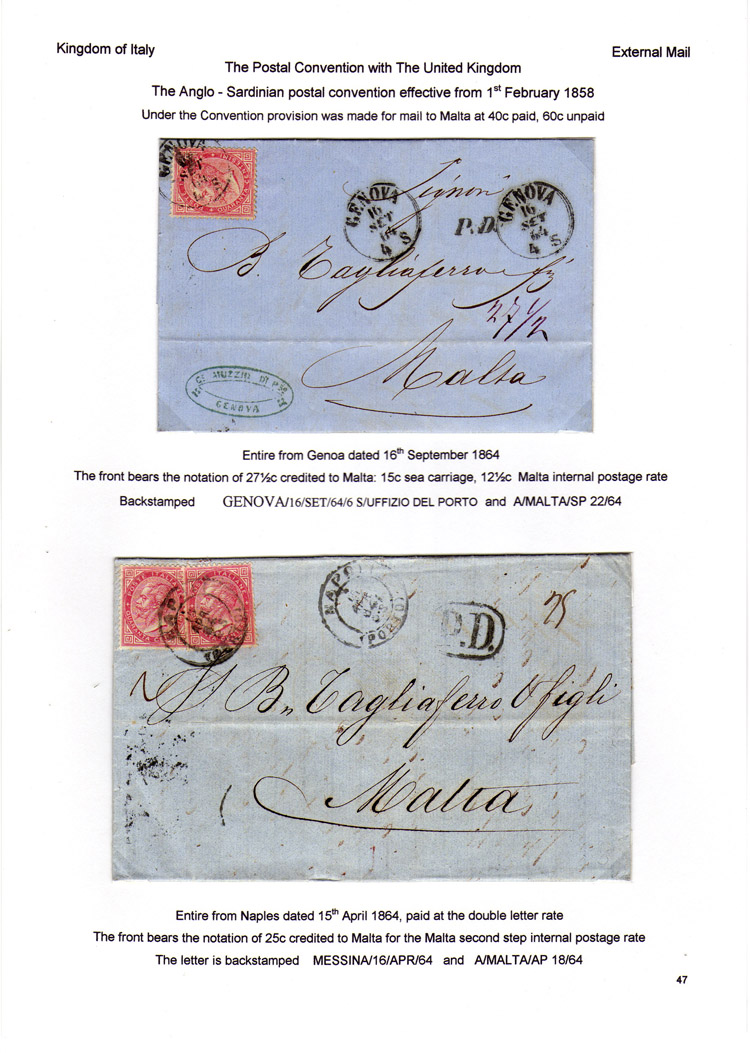 Kingdom of Italy
External Mail
The Postal Convention with The United Kingdom
The Anglo - Sardinian postal convention effective from 1st February 1858
Under the Convention provision was made for mail to Malta at 40c paid, 60c unpaid
GENOVA
GENOVA
16
SET
64
4 S
GENOVA
16
SET
64
4 S
P.D.
Signori
B. Tagliaferro
27 1/2
Malta
GENOVA
Entire from Genoa dated 16th September 1864
The front bears the notation of 27½c credited to Malta: 15c sea carriage, 12½c Malta internal postage rate
Backstamped GENOVA/16/SET/64/6 S/UFFIZIO DEL PORTO and A/MALTA/SP 22/64
POSTE ITALIANE
NAPOLI
(PORTO)
P.D.
25
B. Tagliaferro & figli
Malta
Entire from Naples dated 15th April 1864, paid at the double letter rate
The front bears the notation of 25c credited to Malta for the Malta second step internal postage rate
The letter is backstamped MESSINA/16/APR/64 and A/MALTA/AP 18/64
47